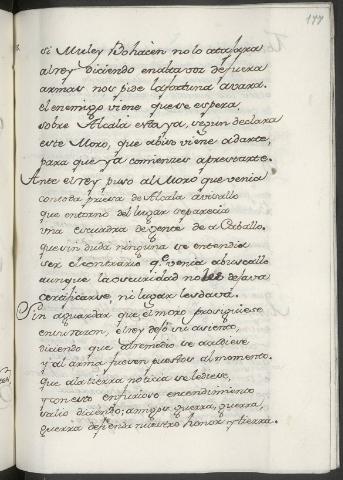 177
si Muley Bohacen no lo atajara
al rey diciendo en alta voz de fuera
armas nos pide la fortuna avara.
el enemigo viene que se espera,
sobre Alcala esta ya, segun declara
este Moro, que abiso viene a darte,
para que ya comiences aprestarte.
Ante el rey puso al Moro que venia
con toda priesa de Alcala a visallo
que entorno del lugar se parecia
una escuadra de gente de a Caballo.
que sin duda ninguna se entendia
ser el contrario q.e venia a buscallo
aunque la oscuridad no les dejava
certificarse, ni lugar les dava.
Sin aguardar que el moro prosiguiese
en su razon, el rey dejó su asiento,
diciendo que al remedio se acudiese
y al arma fuesen puestos al momento.
que a la tierra noticia se le diese,
y con esto en furioso encendimiento
salio diciendo; amigos guerra, guerra,
guerra defienda nuestro honor y tierra.